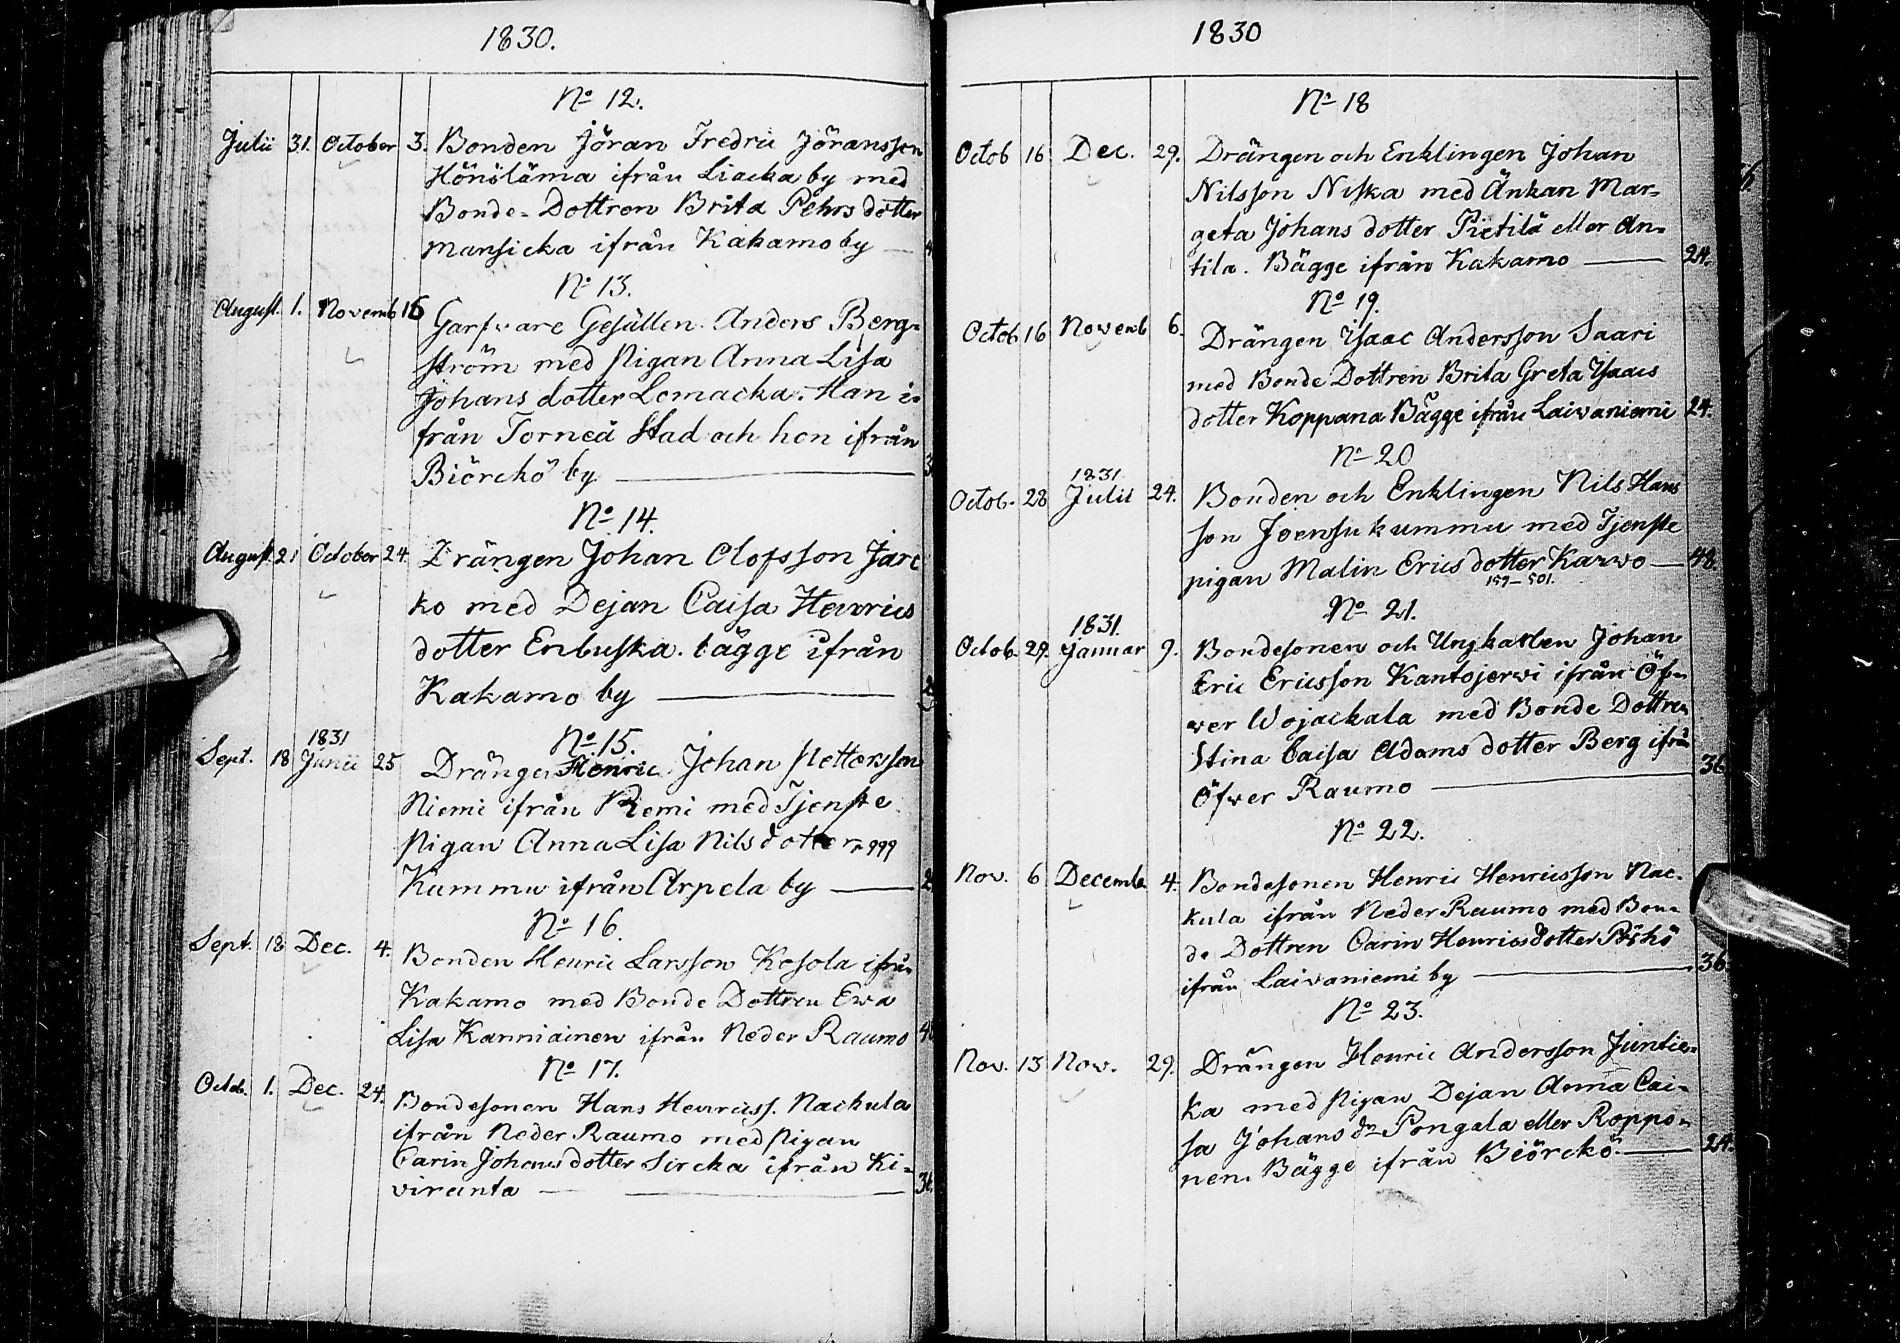 1830.
No 12.
Julii 31. October 3. Bonden Jöran Fredric Jöransson
Hönöläma ifrån Liacka by med
Bonde-Dottren Brita Pehrs dotter
Mansicka ifrån Kakamo by — 4
No 13.
August. 1. Novemb 15 Garfvare Gesällen Anders Berg-
ström med Pigan Anna Lisa
Johans dotter Lomacka. Han i-
från Torneå Stad och hon ifrån
Biörckö by — 3
No 14.
August. 21 October 24. Drängen Johan Olofsson Jarc
ko med Dejan Caisa Henrics
dotter Enbuska. bägge ifrån
Kakamo by — 2
No. 15.
Sept. 18 1831 Junii 25 Drängen Henric Johan Pettersson
Niemi ifrån Kemi med Tjenste
Pigan Anna Lisa Nils dotter 999
Kummu ifrån Arpela by — 2
No 16.
Sept. 18 Dec. 4. Bonden Henric Larsson Kosola ifrån
Kakamo med Bonde Dottren Ewa
Lisa Kanniainen ifrån Neder Raumo 4
No 17.
Octob. 1. Dec. 24. Bondesonen Hans Henricss. Nackula
ifrån Neder Raumo med Pigan
Carin Johans dotter Sircka ifrån Ki-
viranta — 36.
1830
No 18
Octob 16 Dec. 29. Drängen och Enklingen Johan
Nilsson Niska med Änkan Mar-
geta Johans dotter Pietilä eller An-
tila. Bägge ifrån Kakamo — 24.
No 19.
Octob. 16 Novemb 6. Drängen Isaac Andersson Saari
med Bonde Dottren Brita Greta Isaacs
dotter Koppana Bägge ifrån Laivaniemi 24.
No 20
Octob. 28 1831. Julii 24. Bonden och Enklingen Nils Hans
son Joensu kummu med Tjenste
pigan Malin Erics dotter Karvo — 48.
159-501.
No 21.
Octob. 29. 1831. Januar 9. Bondesonen och Ungkarlen Johan
Eric Ericsson Kantojerwi ifrån Öf-
wer Wojackala med Bonde Dottren
Stina Caisa Adams dotter Berg ifrån
Öfwer Raumo — 36
No 22.
Nov. 6 Decemb. 4. Bondesonen Henric Henricsson Nac-
kula ifrån Neder Raumo med Bon-
de Dottren Carin Henrics dotter Pöhö
ifrån Laivaniemi by — 36
No 23.
Nov. 13 Nov. 29. Drängen Henric Andersson Juntic-
ka med Pigan Dejan Anna Cai-
sa Johans dr Pongala eller Roppo-
nen. Bägge ifrån Biörckö. — 24.